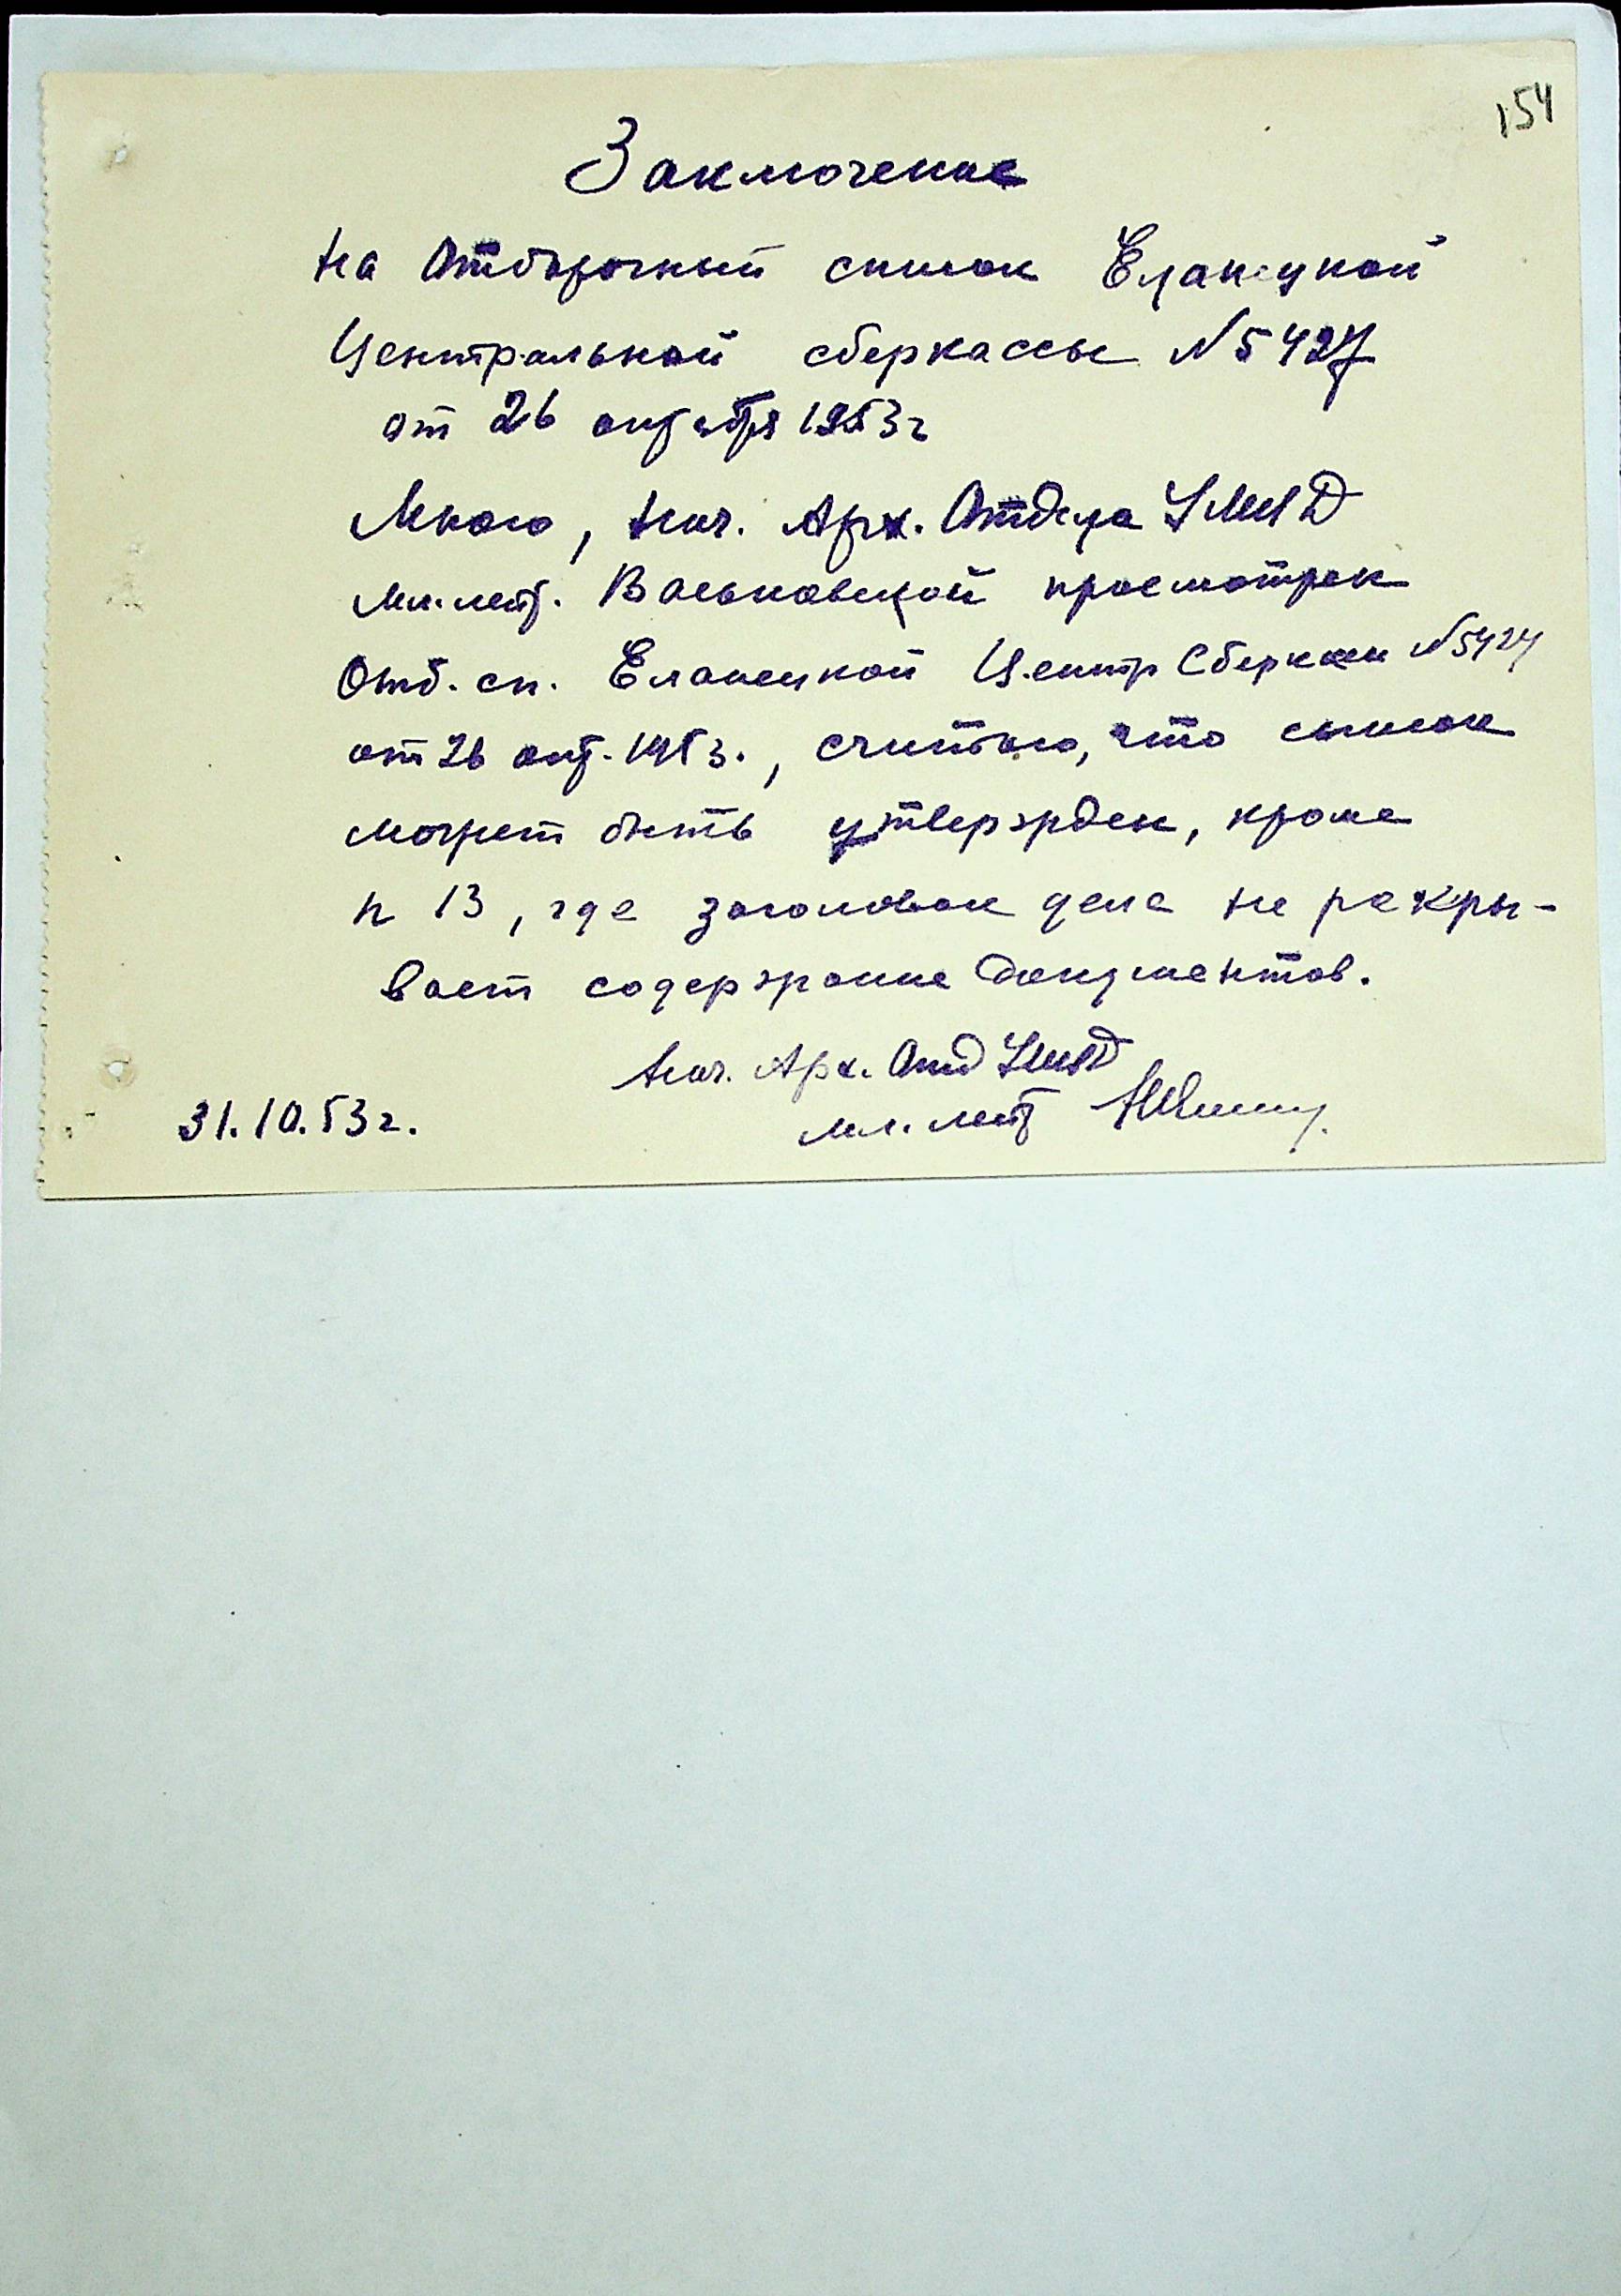 154
Заключение
на Отборочный список Еланецкой
Центральной сберкассы №5427
от 26 октября 1953г
Мною, нач. Арх. Отдела УМВД
мл. лейт. Васьковецкой просмотрен
Отб. сп. Еланецкой Центр Сберкассы №5427
от 26 окт. 1953., считаю, что список
может быть утвержден, кроме
п 13, где заголовок дела не раскры-
вает содержание документов.
Нач. Арх. Отд УМВД
31.10.53г.
мл. лейт